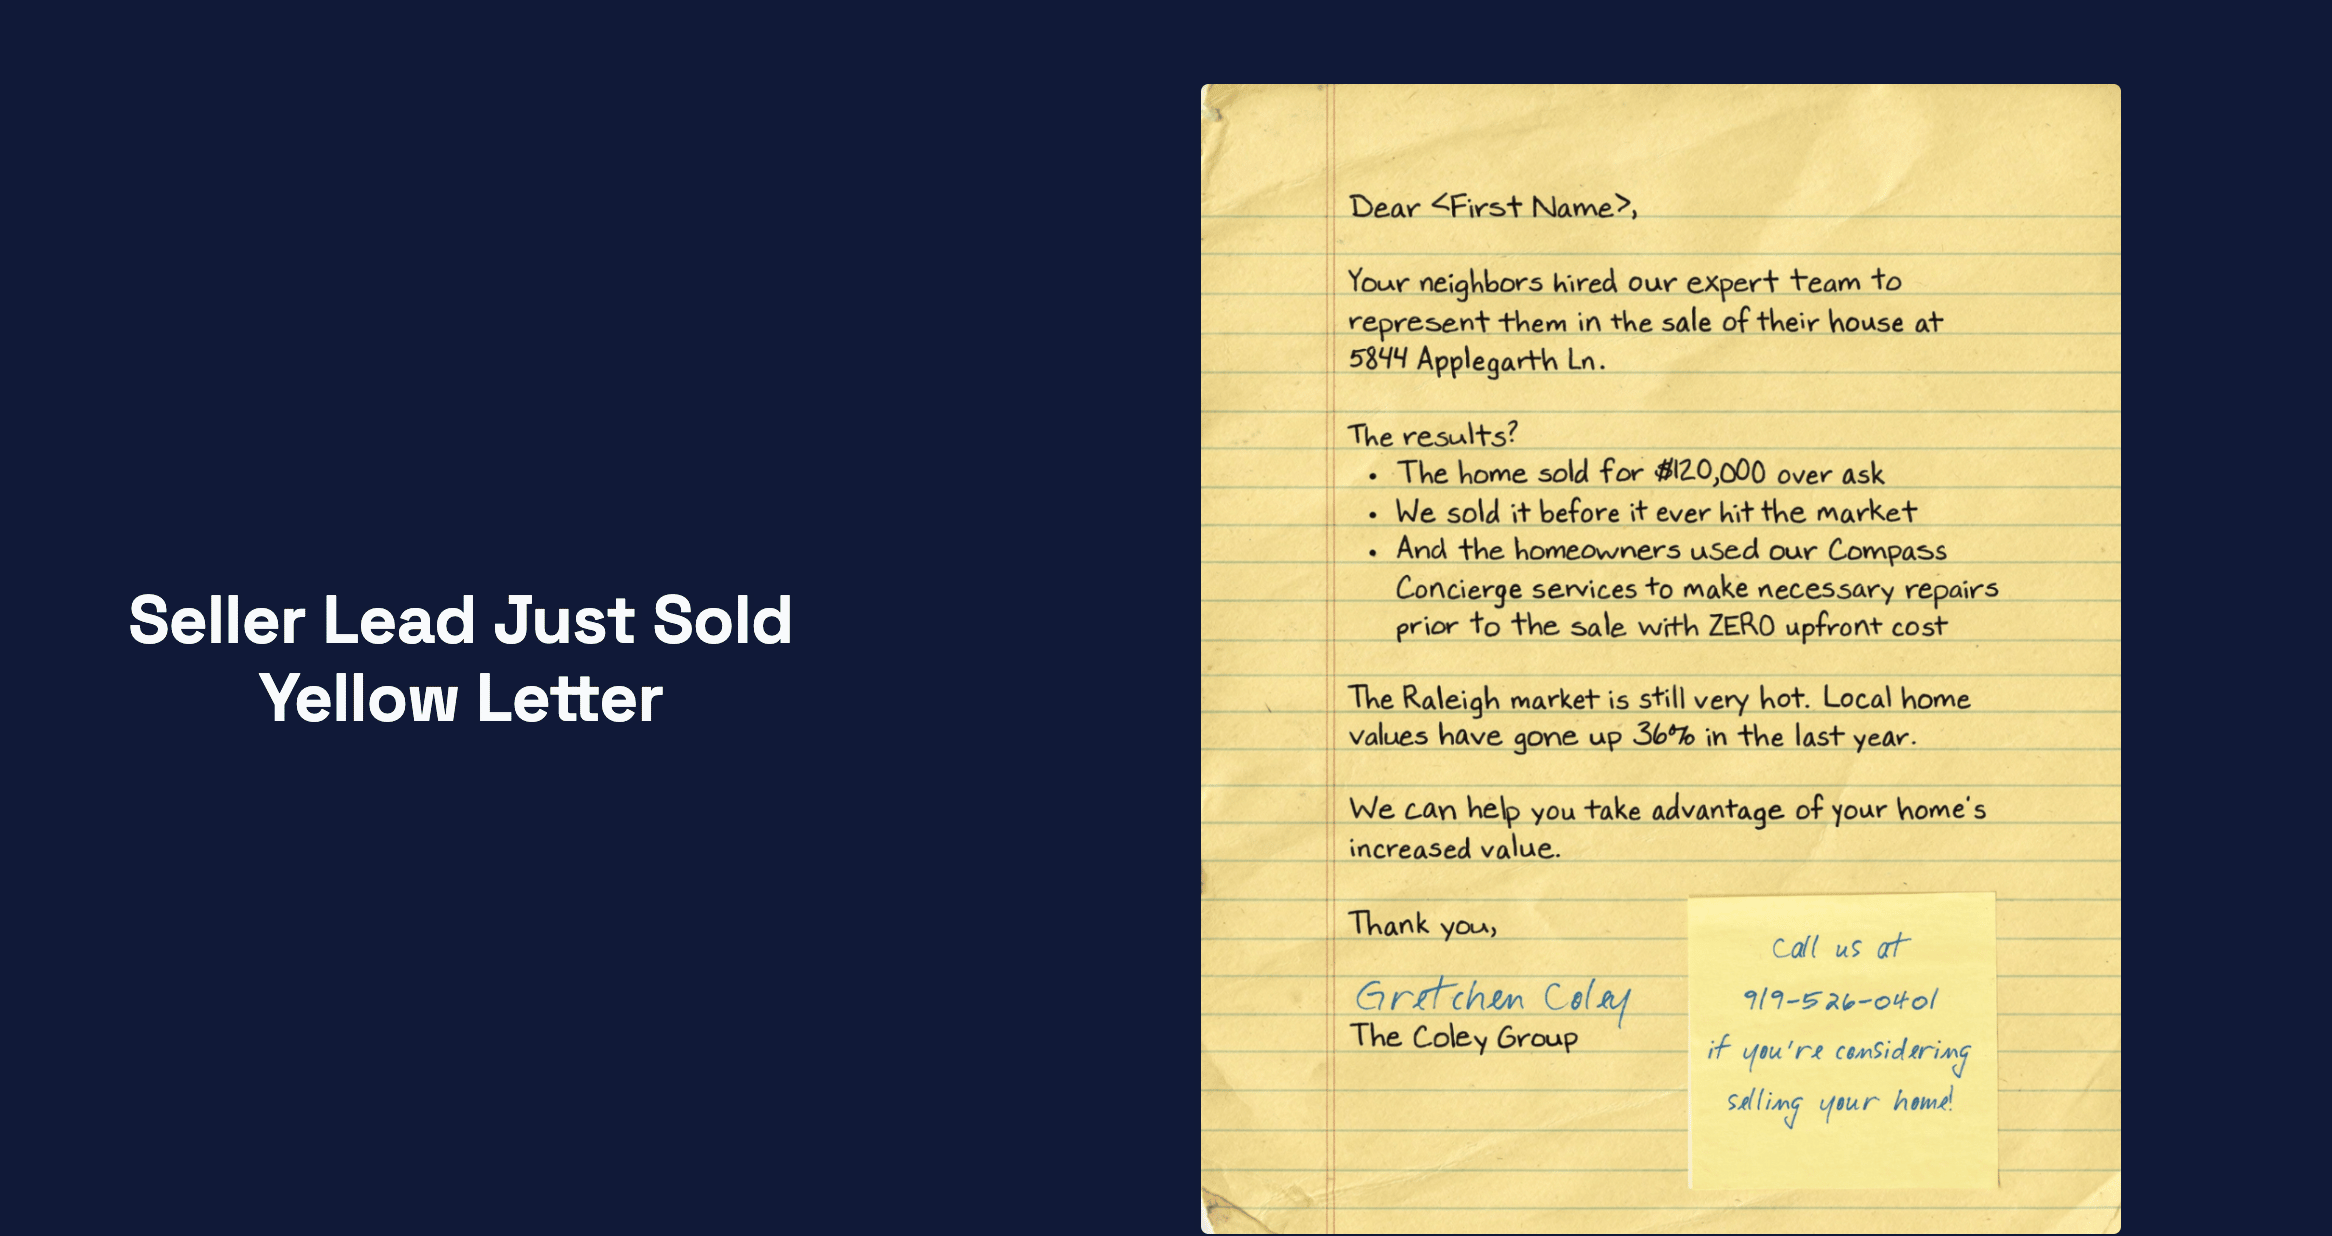 Seller Lead Just Sold
Yellow Letter
Dear <First Name>,
Your neighbors hired our expert team to
represent them in the sale of their house at
5844 Applegarth Ln.
The results?
• The home sold for $120,000 over ask
• We sold it before it ever hit the market
• And the homeowners used our Compass
Concierge services to make necessary repairs
prior to the sale with ZERO upfront cost
The Raleigh market is still very hot. Local home
values have gone up 36% in the last year.
We can help you take advantage of your home's
increased value.
Thank you,
Gretchen Coley
The Coley Group
Call us at
919-526-0401
if you're considering
selling your home!